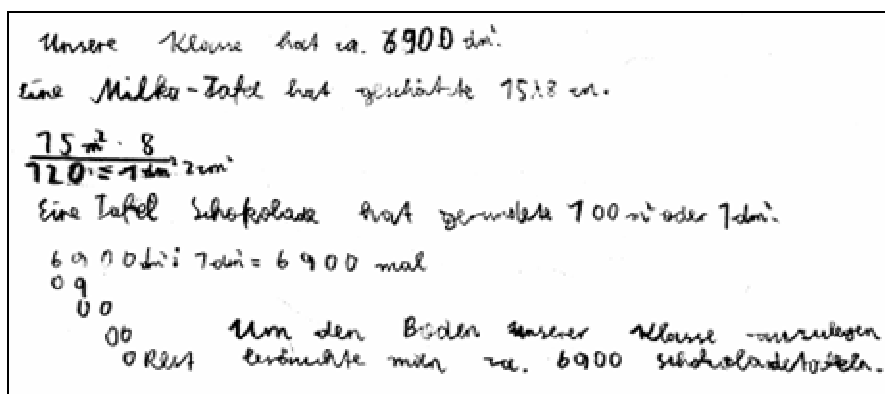 Unsere Klasse hat ca. 6900 dm².
Eine Milka-Tafel hat geschätzte 15x8 cm.
15 m² · 8
120 = 1 dm² 2 cm²
Eine Tafel Schokolade hat gerundete 100 m² oder 1 dm².
6900 dm² : 1 dm² = 6900 mal
09
00
00 Um den Boden unserer Klasse auszulegen
0 Rest bräuchte man ca. 6900 Schokoladetafeln.